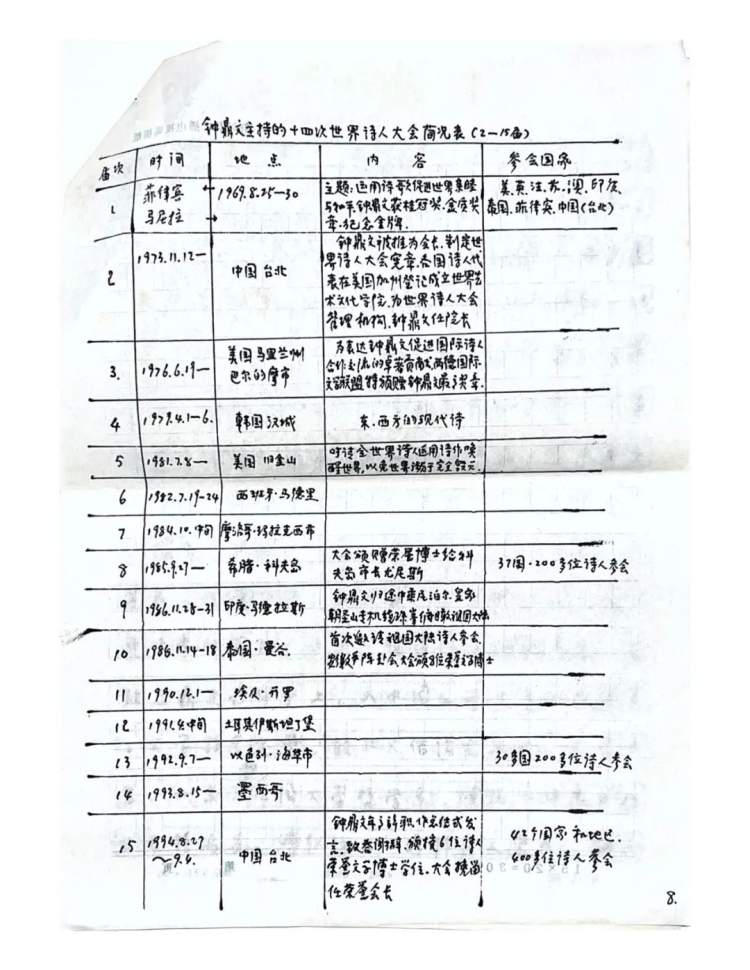 钟鼎文主持的十四次世界诗人大会简况表(2—15届)
届次 时间 地点 内容 参会国家
1 菲律宾 1969.8.25—30 主题:运用诗歌促进世界集睦 美.英.法.苏.澳.印度.
马尼拉 与和平.钟鼎文获桂冠奖.金质奖 泰国.菲律宾.中国(台北)
章.纪念金牌.
2 1973.11.12— 中国 台北 钟鼎文被推为会长.制定世
界诗人大会宪章.各国诗人代
表在美国加州登记成立世界艺
术文化学院.为世界诗人大会
管理机构.钟鼎文任院长
3. 1976.6.19— 美国马里兰州 为表达钟鼎文促进国际诗人
巴尔的摩市 合作交流的卓著贡献.两德国际
文联盟特颁赠钟鼎文最 奖章.
4 1979.4.1—6. 韩国 汉城 东.西方的现代诗
5 1981.7.8— 美国 旧金山 呼请全世界诗人运用诗作唤
醒世界.以免世界
6 1982.7.19—24 西班牙·马德里
7 1984.10.中旬 摩洛哥·玛拉克西市
8 1985.9.27— 希腊·科夫岛 大会颁赠荣誉博士给科 37国·200多位诗人参会
夫岛市长尤尼斯
9 1986.11.28—31 印度·马德拉斯 钟鼎文归途中乘尼泊尔.皇家
朝圣山专机 祖国大陆
10 1988.11.14—18 泰国·曼谷. 首次邀请祖国大陆诗人参会.
大会颁 位荣誉文学博士
11 1990.12.1— 埃及·开罗
12 1991.4.中旬 土耳其伊斯坦丁堡
13 1992.9.7— 以色列·海华市 30多国200多位诗人参会
14 1993.8.15— 墨西哥
15 1994.8.27 中国 台北 钟鼎文年高请职.作总结式发 42个国家和地区.
～9.4. 言.致答谢辞.颁授6位诗人 400多位诗人参会
荣誉文学博士学位.大会授
任荣誉会长
8.